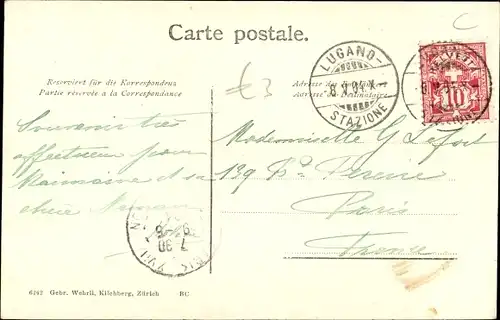 Carte postale.
Reserviert für die Korrespondenz
Partie réservée à la Correspondance
Adresse des
Adresse du Destinataire
LUGANO-
8.V.04.X-
STAZIONE
HELVETIA
10
Souvenir très
affectueux pour
Mademoiselle G Lefort
139 Bd Pereire
Paris
France
chère
7 30
6262 Gebr. Wehrli, Kilchberg, Zürich RC